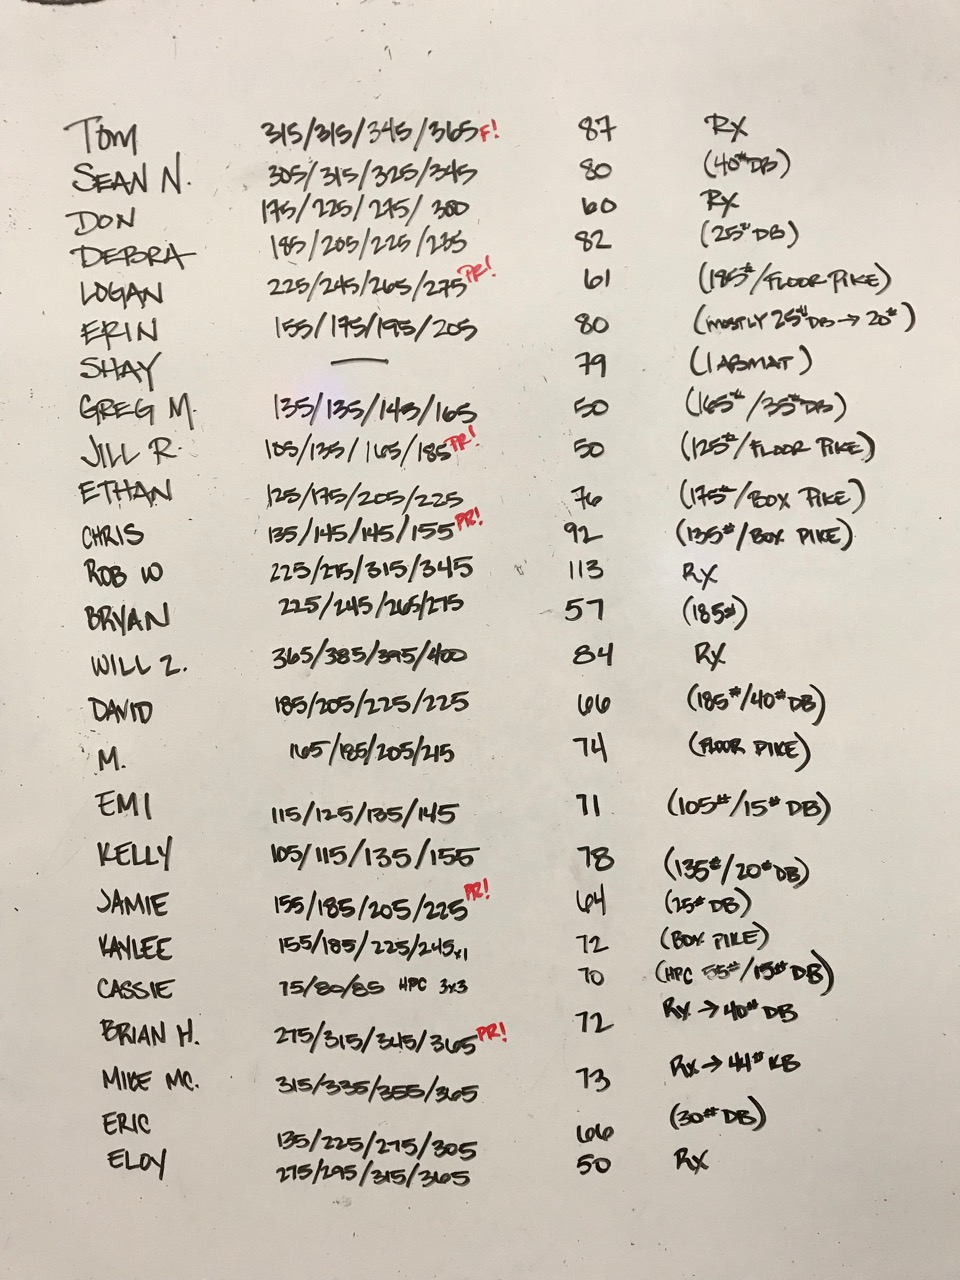 TOM 315/315/345/365 F! 87 RX
SEAN N. 305/315/325/345 80 (40# DB)
DON 175/225/275/300 60 RX
DEBRA 185/205/225/235 82 (25# DB)
LOGAN 225/245/265/275 PR! 61 (185#/FLOOR PIKE)
ERIN 155/175/195/205 80 (MOSTLY 25# DB → 20#)
SHAY — 79 (1 ABMAT)
GREG M. 135/135/145/165 50 (165#/35# DB)
JILL R. 105/135/165/185 PR! 50 (125#/FLOOR PIKE)
ETHAN 125/175/205/225 76 (175#/BOX PIKE)
CHRIS 135/145/145/155 PR! 92 (135#/BOX PIKE)
ROB W 225/275/315/345 113 RX
BRYAN 225/245/265/275 57 (185#)
WILL Z. 365/385/395/400 84 RX
DAVID 185/205/225/225 66 (185#/40# DB)
M. 165/185/205/215 74 (FLOOR PIKE)
EMI 115/125/135/145 71 (105#/15# DB)
KELLY 105/115/135/155 78 (135#/20# DB)
JAMIE 155/185/205/225 PR! 64 (25# DB)
KAYLEE 155/185/225/245x1 72 (BOX PIKE)
CASSIE 75/80/85 HPC 3x3 70 (HPC 55#/15# DB)
BRIAN H. 275/315/345/365 PR! 72 RX → 40# DB
MIKE MC. 315/335/355/365 73 RX → 44# KB
ERIC 135/225/275/305 66 (30# DB)
ELOY 275/295/315/365 50 RX